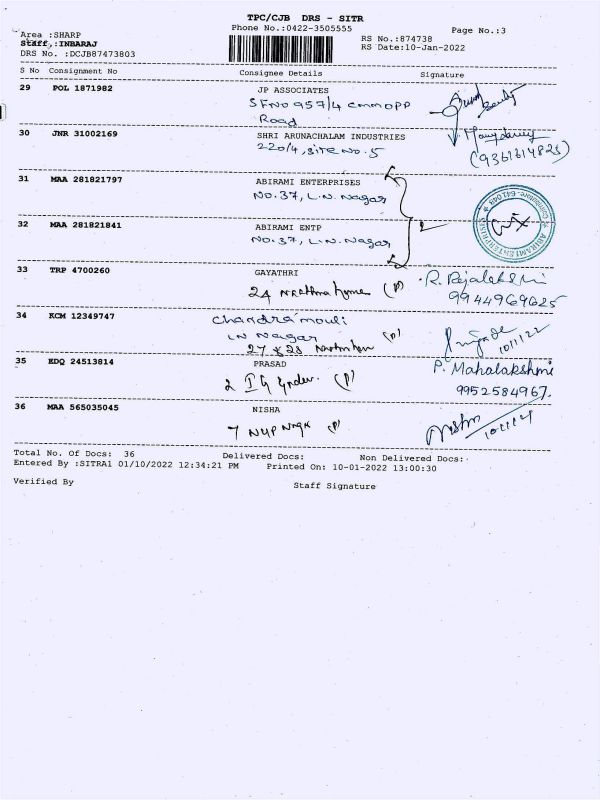 TPC/CJB DRS - SITR
Phone No.:0422-3505555
Page No.:3
Area :SHARP
Staff :INBARAJ
DRS No. :DCJB87473803
RS No.:874738
RS Date:10-Jan-2022
S No Consignment No Consignee Details Signature
29 POL 1871982 JP ASSOCIATES
SFNO 957/4 Cmm opp
Road
30 JNR 31002169 SHRI ARUNACHALAM INDUSTRIES
220/4, Site No. 5
(9361614823)
31 MAA 281821797 ABIRAMI ENTERPRISES
NO.37, L.N. Nagar
32 MAA 281821841 ABIRAMI ENTP
NO.37, L.N. Nagar
ABIRAMI ENTERPRISES
33 TRP 4700260 GAYATHRI
24 (P)
R. Rajalakshmi
9944969625
34 KCM 12349747 Chandramouli
LN Nagar
27 & 28 (P)
10/1/22
35 EDQ 24513814 PRASAD
2 (P)
P. Mahalakshmi
9952584967.
36 MAA 565035045 NISHA
7 (P)
Total No. Of Docs: 36 Delivered Docs: Non Delivered Docs:
Entered By :SITRA1 01/10/2022 12:34:21 PM Printed On: 10-01-2022 13:00:30
Verified By Staff Signature